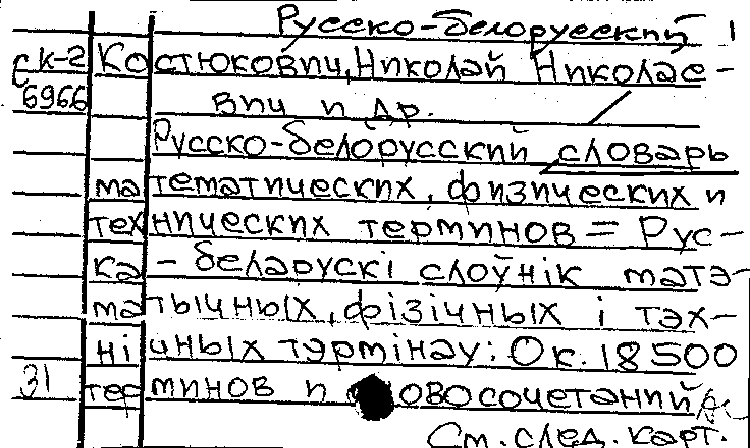 Русско-белорусский 1
ск-2 Костюкович, Николай Николае-
6966 вич и др.
Русско-белорусский словарь
математических, физических и
технических терминов = Рус-
ка-беларускі слоўнік матэ-
матычных, фізічных і тэх-
нічных тэрмінау: Ок. 18500
31 терминов и овосочетаний
См. след. карт.